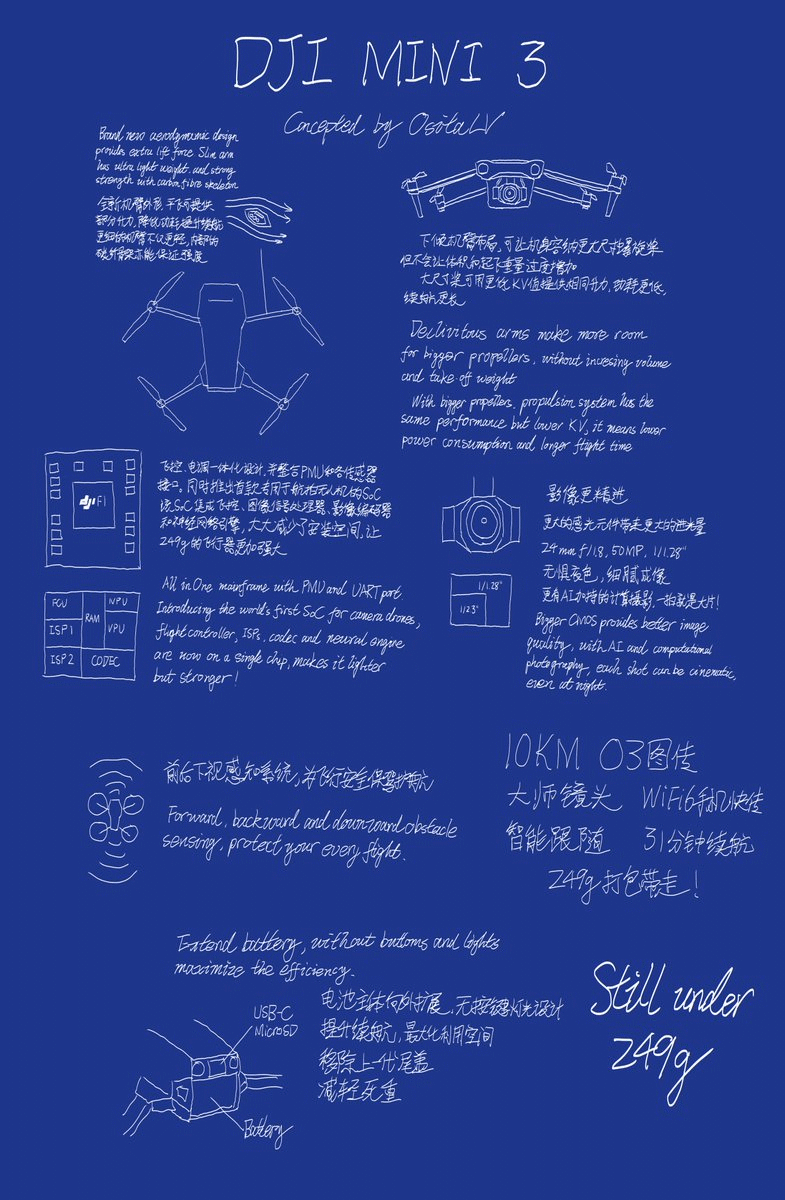 DJI MINI 3
Concepted by OsitaLV
Brand new aerodymamic design
provides extra lift force. Slim arm
has ultra light weight and strong
strength with carbon fibre skeleton
全新机臂外形,平飞可提供
部分升力,降低功耗提升续航
更细的机臂不仅更轻,内部的
碳纤骨架亦能保证强度
下倾机臂布局,可让机身容纳更大尺寸螺旋桨
但不会让体积和起飞重量过度增加
大尺寸桨可用更低KV值提供相同升力,功耗更低,
续航更长
Declivitous arms make more room
for bigger propellers, without incresing volume
and take-off weight
With bigger propellers, propulsion system has the
same performance but lower KV, it means lower
power consumption and longer flight time
dji Fi
飞控、电调一体化设计,并整合PMU和各传感器
接口。同时推出首款专用于航拍无人机的SoC
该SoC集成飞控、图像信号处理器、影像编码器
和神经网络引擎,大大减少了安装空间,让
249g的飞行器更加强大
FCU
RAM
NPU
ISP1
VPU
ISP2
CODEC
All in One mainframe with PMU and UART port
Introducing the world's first SoC for camera drones,
flight controller, ISPs, codec and neural engine
are now on a single chip, makes it lighter
but stronger!
影像更精进
更大的感光元件带来更大的进光量
24mm f/1.8, 50MP, 1/1.28"
无惧夜色,细腻成像
更有AI加持的计算摄影,一拍就是大片!
1/1.28"
1/2.3"
Bigger CMOS provides better image
quality, with AI and computational
photography, each shot can be cinematic,
even at night.
前后下视感知系统,为飞行安全保驾护航
Forward, backward and downward obstacle
sensing, protect your every flight.
10KM O3图传
大师镜头 WiFi6手机快传
智能跟随 31分钟续航
249g打包带走!
Extend battery, without buttoms and lights
maximize the efficiency.
USB-C
MicroSD
Battery
电池主体向外扩展,无按键灯光设计
提升续航,最大化利用空间
移除上一代尾盖
减轻死重
Still under
249g